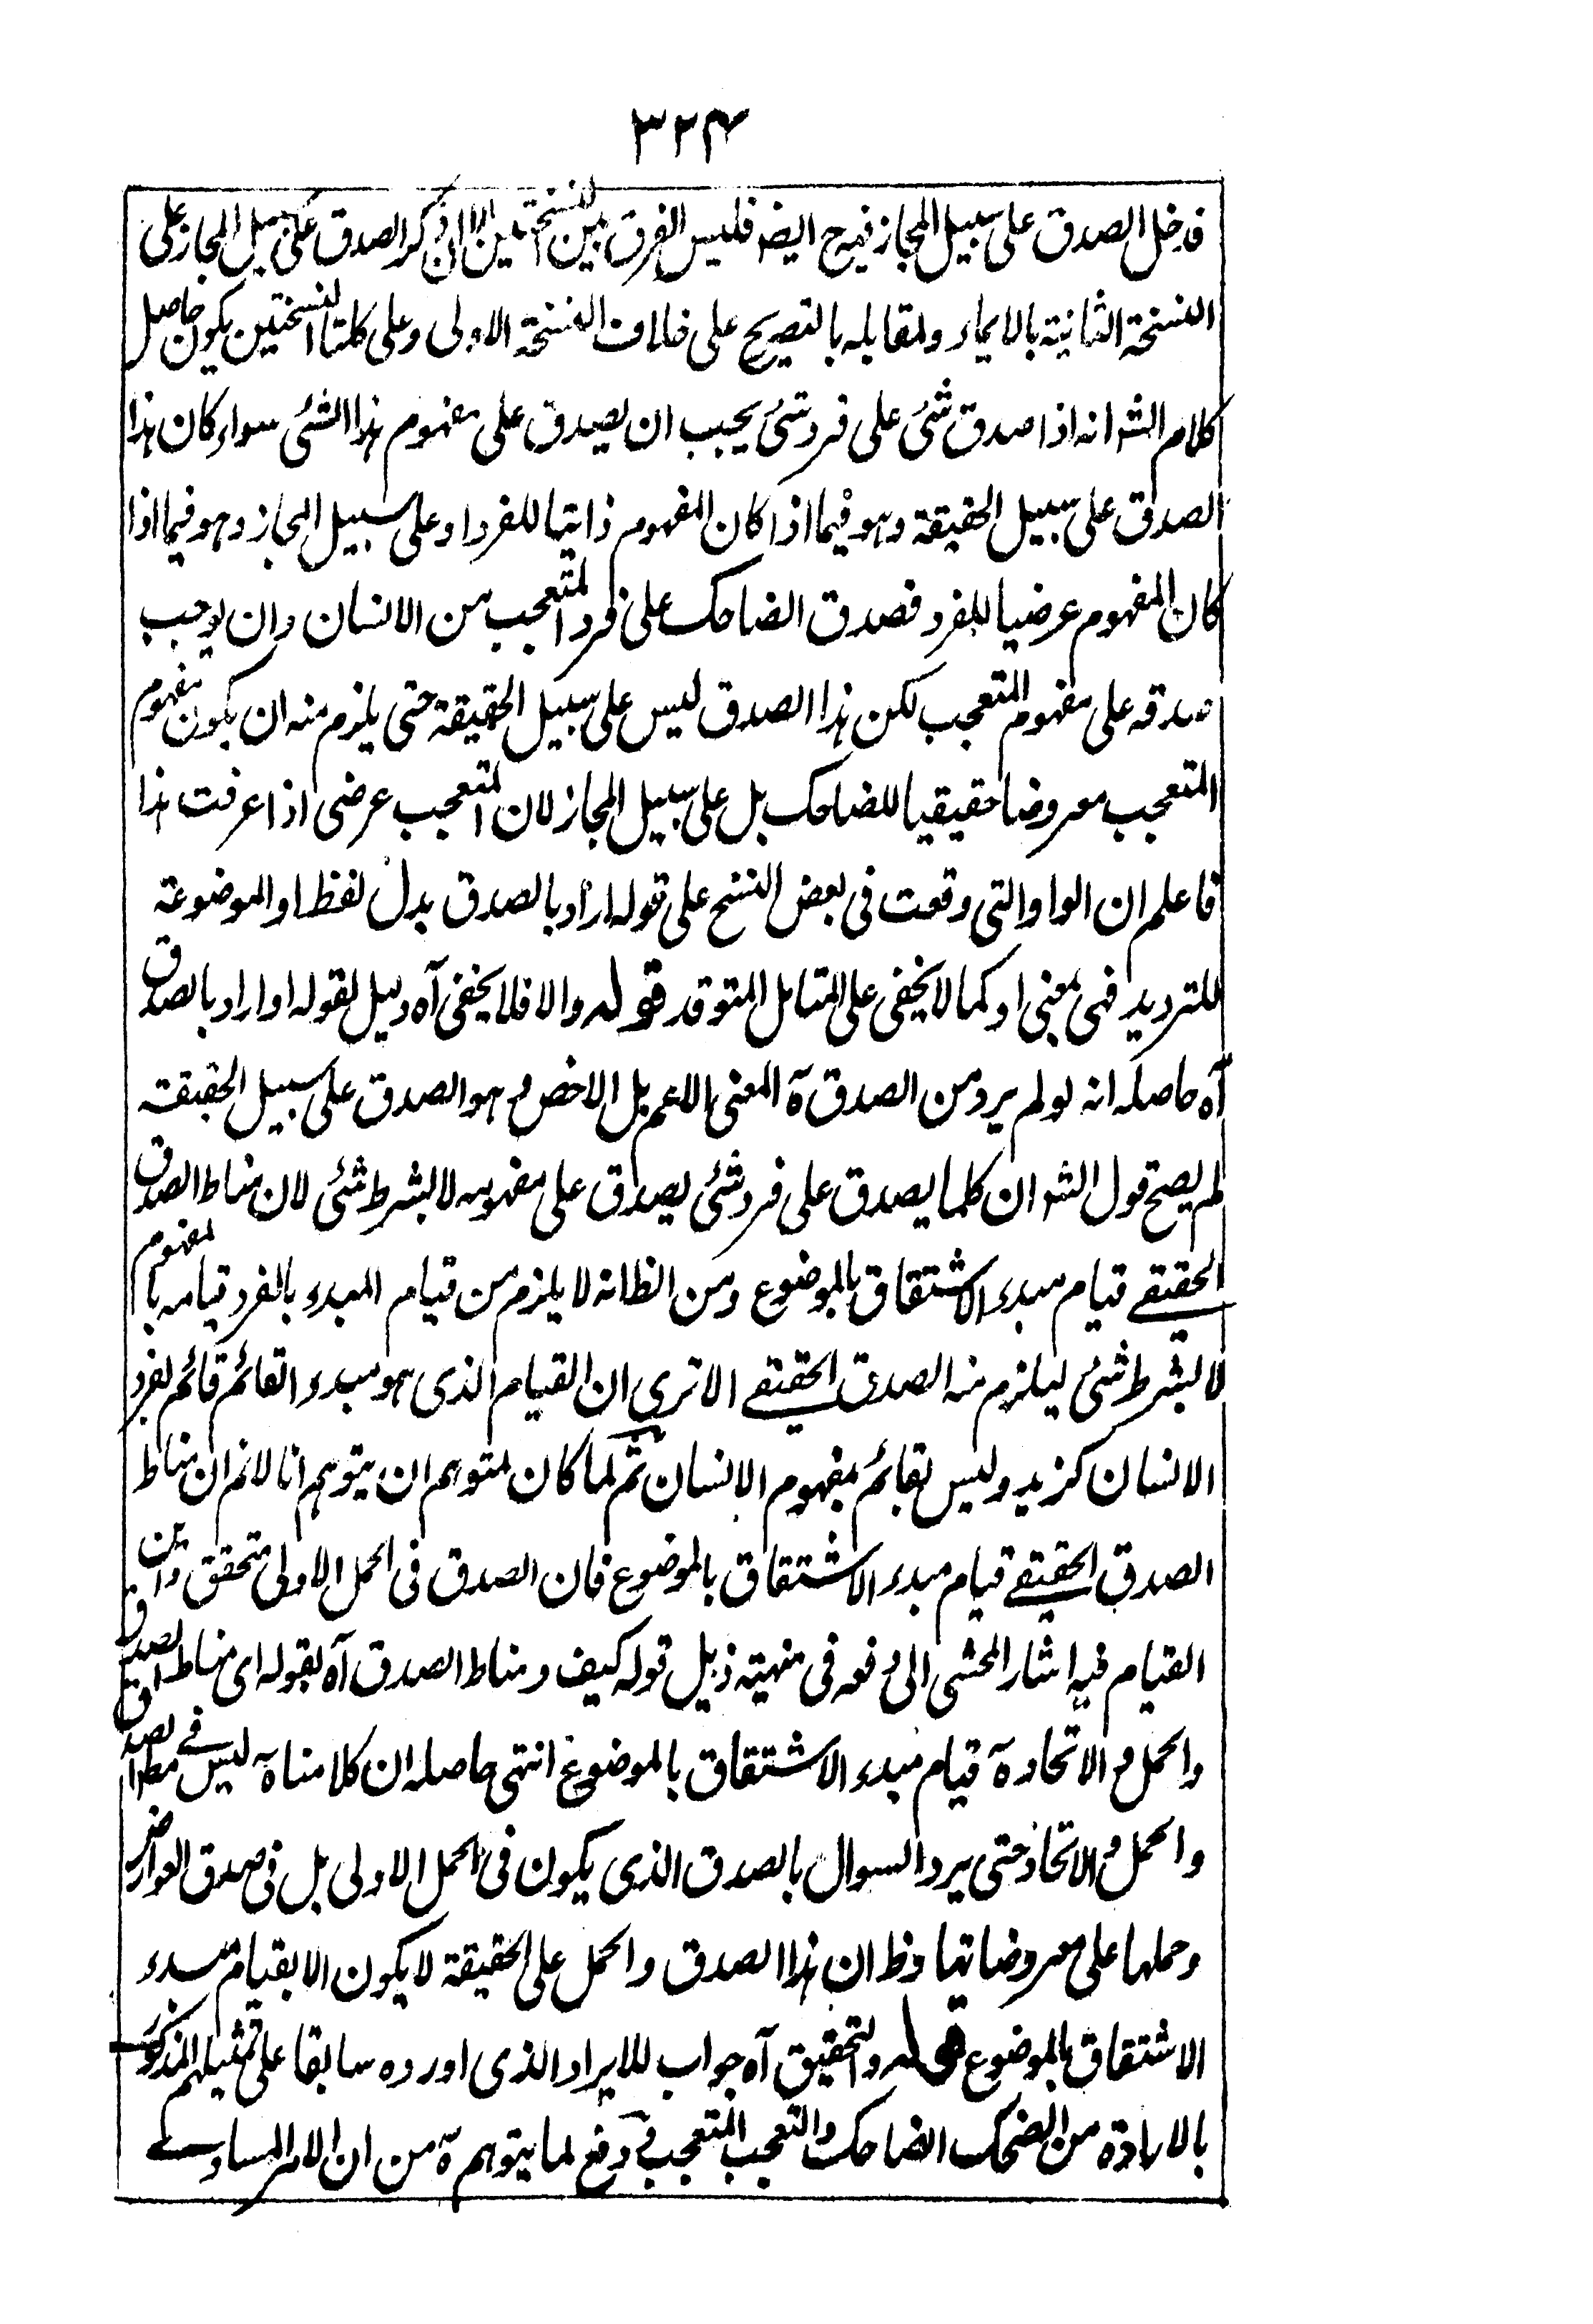 ٣٢٤
فدخل الصدق على سبيل المجاز فيه ح ايضا فليس الفرق بين النسختين الا ان ذكر الصدق على سبيل المجاز على
النسخة الثانية بالايماء ولمقابله بالتصريح على خلاف النسخة الاولى وعلى كلتا النسختين يكون حاصل
كلام الشر انه اذا صدق شئ على فرد شئ يجب ان يصدق على مفهوم هذا الشئ سواء كان هذا
الصدق على سبيل الحقيقة وهو فيما اذا كان المفهوم ذاتيا للفرد او على سبيل المجاز وهو فيما اذا
كان المفهوم عرضيا للفرد فصدق الضاحك على فرد المتعجب من الانسان وان يوجب
صدقه على مفهوم المتعجب لكن هذا الصدق ليس على سبيل الحقيقة حتى يلزم منه ان يكون مفهوم
المتعجب معروضا حقيقيا للضاحك بل على سبيل المجاز لان المتعجب عرضى اذا عرفت هذا
فاعلم ان الواو التى وقعت فى بعض النسخ على قوله اراد بالصدق بدل لفظ او الموضوعة
للترديد فهى بمعنى او كما لا يخفى على المتامل المتوقد قوله والا فلا يخفى آه دليل لقوله او اراد بالصدق
آه حاصله انه لو لم يرد من الصدق ة المعنى الاعم بل الاخص و هو الصدق على سبيل الحقيقة
لم يصح قول الشر ان كلما يصدق على فرد شئ يصدق على مفهومه لا بشرط شئ لان مناط الصدق
الحقيقے قيام مبدء الاشتقاق بالموضوع ومن الظ انه لا يلزم من قيام المبدء بالفرد قيامه بالمفهوم
لا بشرط شئ ليلزم منه الصدق الحقيقے الا ترى ان القيام الذى هو مبدء القائم قائم بفرد
الانسان كزيد وليس بقائم بمفهوم الانسان ثم لما كان لمتوهم ان يتوهم انا لانم ان مناط
الصدق الحقيقے قيام مبدء الاشتقاق بالموضوع فان الصدق فى الحمل الاولى متحقق واين
القيام فيه اشار المحشى الى دفعه فى منهيته ذيل قوله كيف ومناط الصدق آه بقوله اى مناط الصدق
والحمل و الاتحاد ة قيام مبدء الاشتقاق بالموضوع انتهى حاصله ان كلامنا ة ليس فے مطلق الصدق
والحمل و الاتحاد حتى يرد السوال بالصدق الذى يكون فى الحمل الاولى بل فى صدق العوارض
وحملها على معروضاتها وظ ان هذا الصدق والحمل على الحقيقة لا يكون الا بقيام مبدء
الاشتقاق بالموضوع قوله والتحقيق آه جواب للايراد الذى اورده سابقا على تمثيلهم المذكور
بالارادة من الضحك الضاحك والتعجب المتعجب فے دفع لما يتوهم ة من ان الامر المساوے